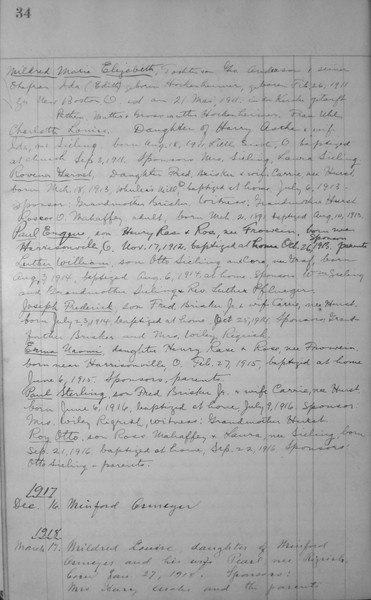 34
Mildred Marie Elizabeth, Tochter Geo Anderson & seiner
Ehefrau Ida (Edith) geboren Hockenhammer, geboren Feb 26, 1911
New Boston O. und am 21 Mai, 1911, in der Kirche getauft
Pathen, Mutter Grossmutter Hockenhammer. Flora
Charlotte Louise, Daughter of Harry & wife
Ida, nee Sieling born Aug. 18, 1911, baptized
at church Sep 3, 1911. Sponsors Mrs. Sieling Laura Sieling
Rowena Harriet, Daughter Fred Brisker & wife Carrie, nee Hurst,
born Mch. 18, 1913 Wheelers Mill, O baptized at home July 6, 1913 -
Sponsor: Grandmother Brisker Witness: Grandmother Hurst
Roscoe O. Mahaffey adult, born Mch. 21, 1891 baptized Aug 10, 1913
Paul Eugene son Henry Rase & Rose, nee Frowein, born near
Harrisonville, O. Nov. 17, 1912, baptized at home Oct 26, 1913. parents
Luther William, son Otto Sieling and Cora, nee Graf, born
Aug. 3, 1914, baptized Aug. 6, 1914 at home. Sponsors, Wm Sieling
and Grandmother Sieling & Rev. Luther Pflueger.
Joseph Frederick, son Fred Brisker Jr & wife Carrie, nee Hurst,
born July 23, 1914 baptized at home, Oct 25, 1914, Sponsors, Grand-
father Brisker and Mrs. Wiley Rigrish.
Erma Naomi daughter Henry Rase & Rose, nee Frowein
born near Harrisonville, O. Feb. 27, 1915, baptized at home
June 6, 1915 Sponsors, parents.
Paul Sterling, son Fred Brisker Jr. & wife Carrie, nee Hurst.
born June 6, 1916, baptized at home, July 9, 1916. Sponsor
Mrs. Wiley Rigrish, witness: Grandmother Hurst
Roy Otto, son Ross Mahaffey & Laura, nee Sieling, born
Sep. 21, 1916, baptized at home, Sep. 22, 1916 Sponsors:
Otto Sieling - parents.
1917
Dec 16 Minford Osmeyer
1918
March 17. Mildred Louise, daughter of Minford
Osmeyer and his wife Pearl nee Rigrish,
born Jan. 27, 1918. Sponsors:
Mrs Harry and the parents